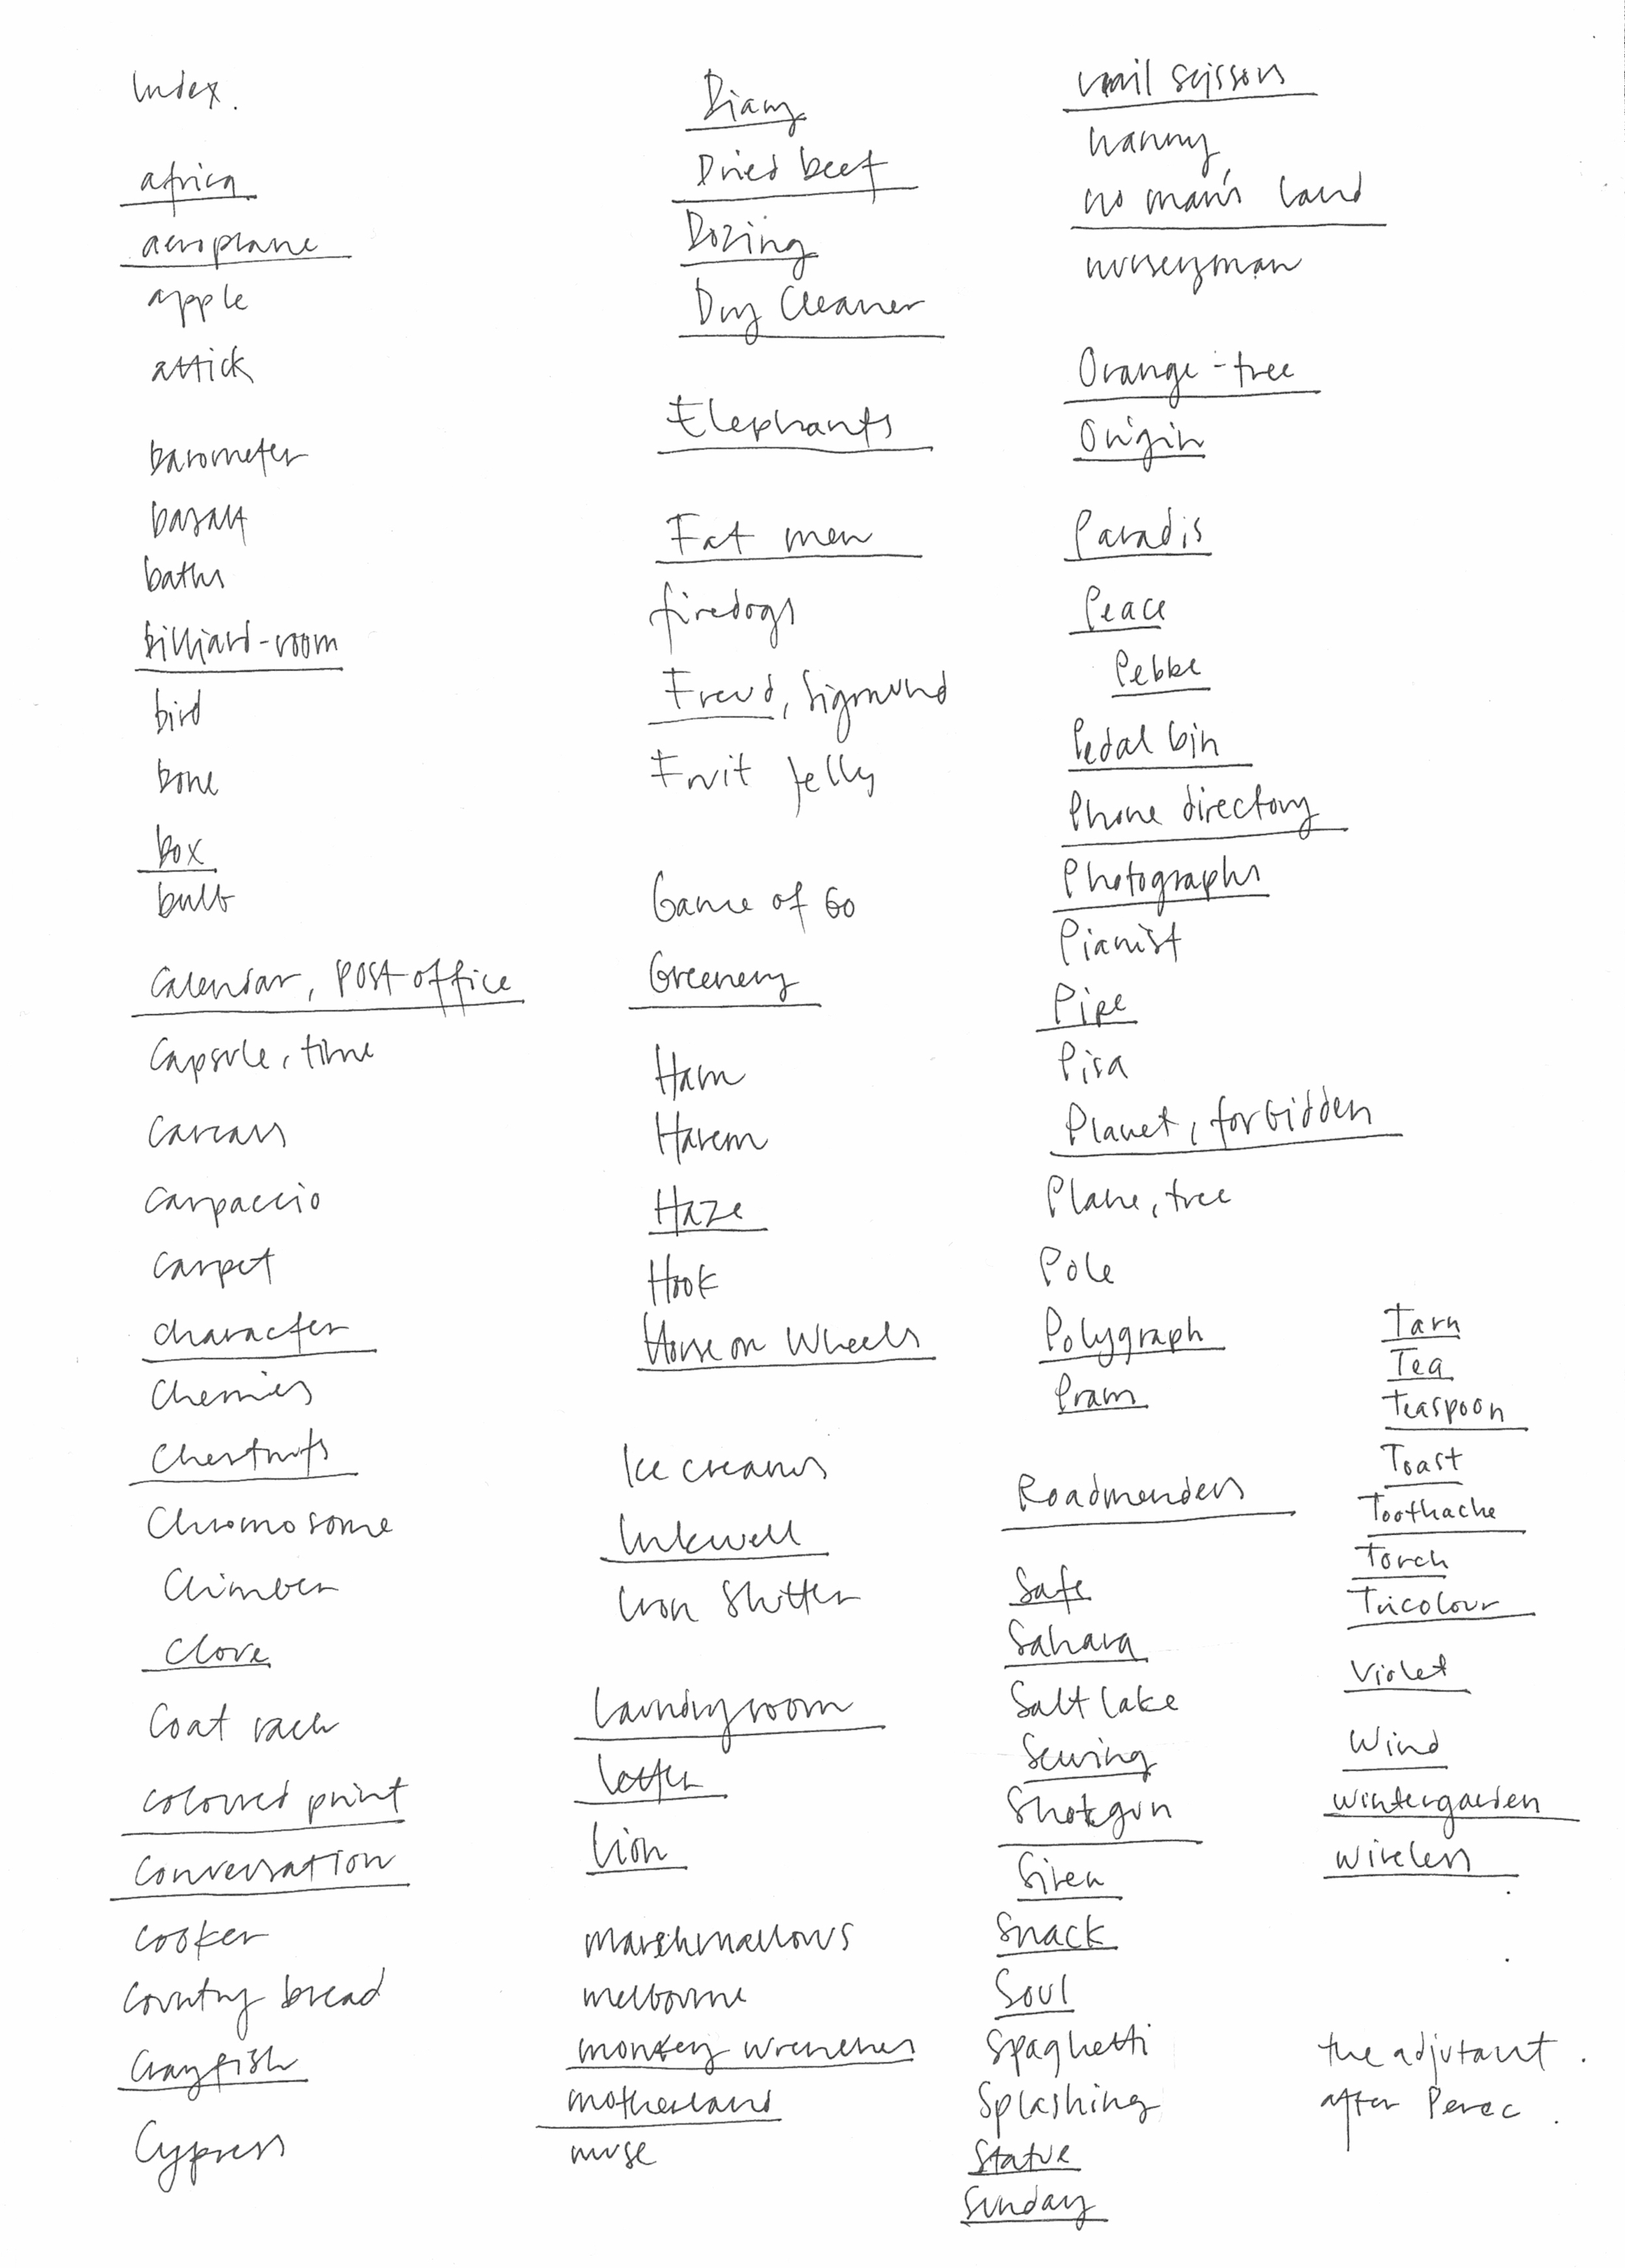 Index.
africa
aeroplane
apple
attick
barometer
basalt
baths
billiard-room
bird
bone
box
bulb
Calendar, post office
Capsule, time
Carcass
Carpaccio
Carpet
Character
Cherries
Chestnuts
Chromosome
Climber
Clove
Coat rack
Coloured print
Conversation
Cooker
Country bread
Crayfish
Cypress
Diary
Dried beef
Dozing
Dry Cleaner
Elephants
Fat men
firedogs
Freud, Sigmund
Fruit Jelly
Game of Go
Greenery
Ham
Harem
Haze
Hook
Horse on Wheels
Ice creams
Inkwell
Iron Shutter
Laundryroom
Letter
Lion
Marshmallows
melbourne
monkey wrenches
motherland
muse
nail scissors
nanny
no man's land
nurseryman
Orange-tree
Origin
Paradis
Peace
Pebble
Pedal bin
Phone directory
Photographs
Pianist
Pipe
Pisa
Planet, forbidden
Plane, tree
Pole
Polygraph
Pram
Roadmenders
Safe
Sahara
Salt lake
Sewing
Shotgun
Siren
Snack
Soul
Spaghetti
Splashing
Statue
Sunday
Tarn
Tea
Teaspoon
Toast
Toothache
Torch
Tricolour
Violet
Wind
wintergarden
wireless
the adjutant.
after Perec.